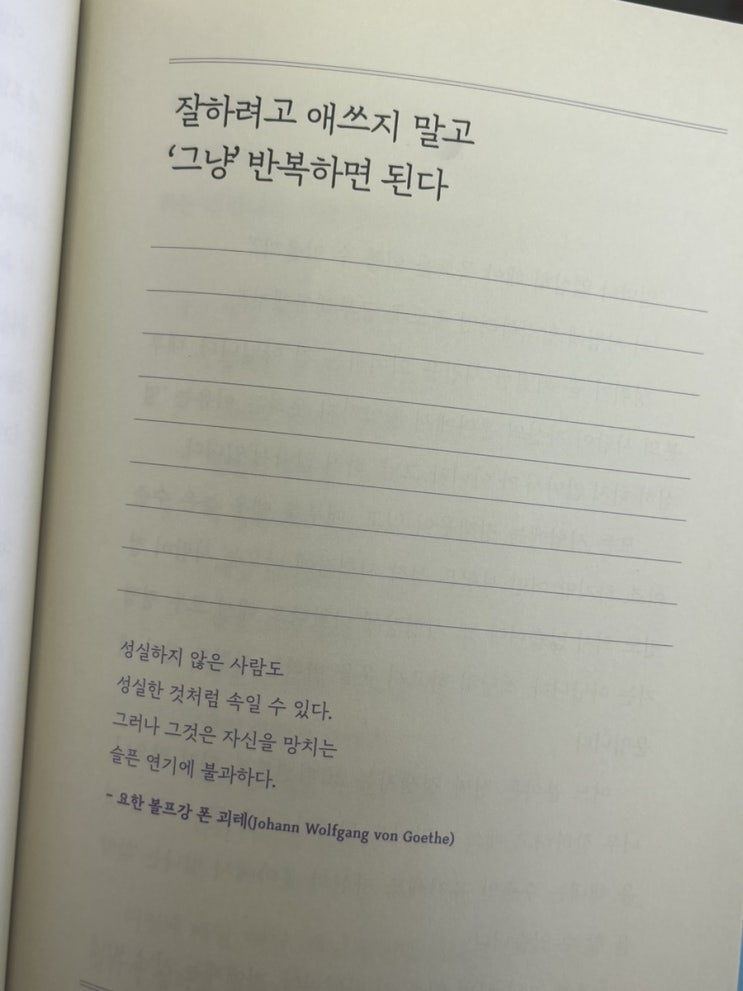 잘하려고 애쓰지 말고
‘그냥’ 반복하면 된다
성실하지 않은 사람도
성실한 것처럼 속일 수 있다.
그러나 그것은 자신을 망치는
슬픈 연기에 불과하다.
- 요한 볼프강 폰 괴테(Johann Wolfgang von Goethe)